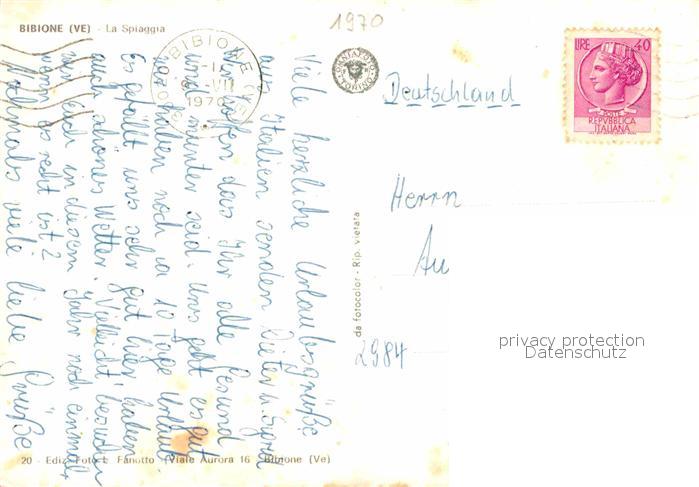 1970
BIBIONE (VE) - La Spiaggia
BIBIONE
VII
1970
LIRE 40
POSTE
REPVBBLICA
ITALIANA
Deutschland
Viele herzliche Urlaubsgrüße
aus Italien senden Dieter u. Sigrid
Wir hoffen das Ihr alle Gesund
und munter seid. Uns geht es gut
wir haben noch ca 10 Tage Urlaub
Es gefällt uns sehr gut hier, haben
auch schönes Wetter. Vielleicht besuchen
wir Euch in diesem Jahr noch einmal,
wenn es recht ist?
Nochmals viele liebe Grüße
da fotocolor - Rip. vietata
Herrn
Au
2984
privacy protection
Datenschutz
20 - Ediz. Foto L. Fanotto (Viale Aurora 16 Bibione (Ve)